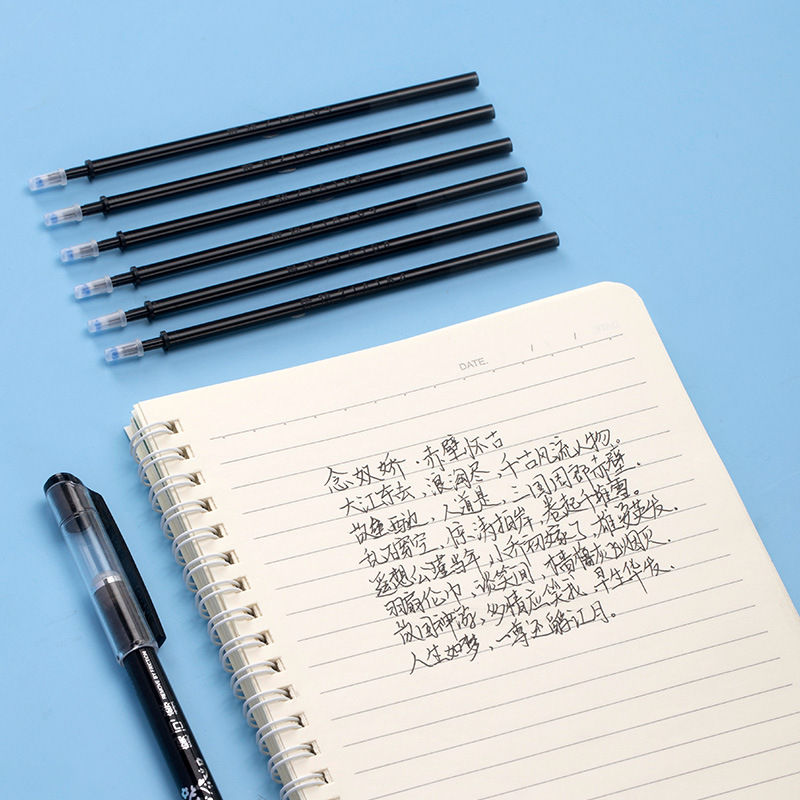 DATE. / /
念奴娇·赤壁怀古
大江东去,浪淘尽,千古风流人物。
故垒西边,人道是,三国周郎赤壁。
乱石穿空,惊涛拍岸,卷起千堆雪。
遥想公瑾当年,小乔初嫁了,雄姿英发。
羽扇纶巾,谈笑间,樯橹灰飞烟灭。
故国神游,多情应笑我,早生华发。
人生如梦,一尊还酹江月。
REMOVE BY FRICTION